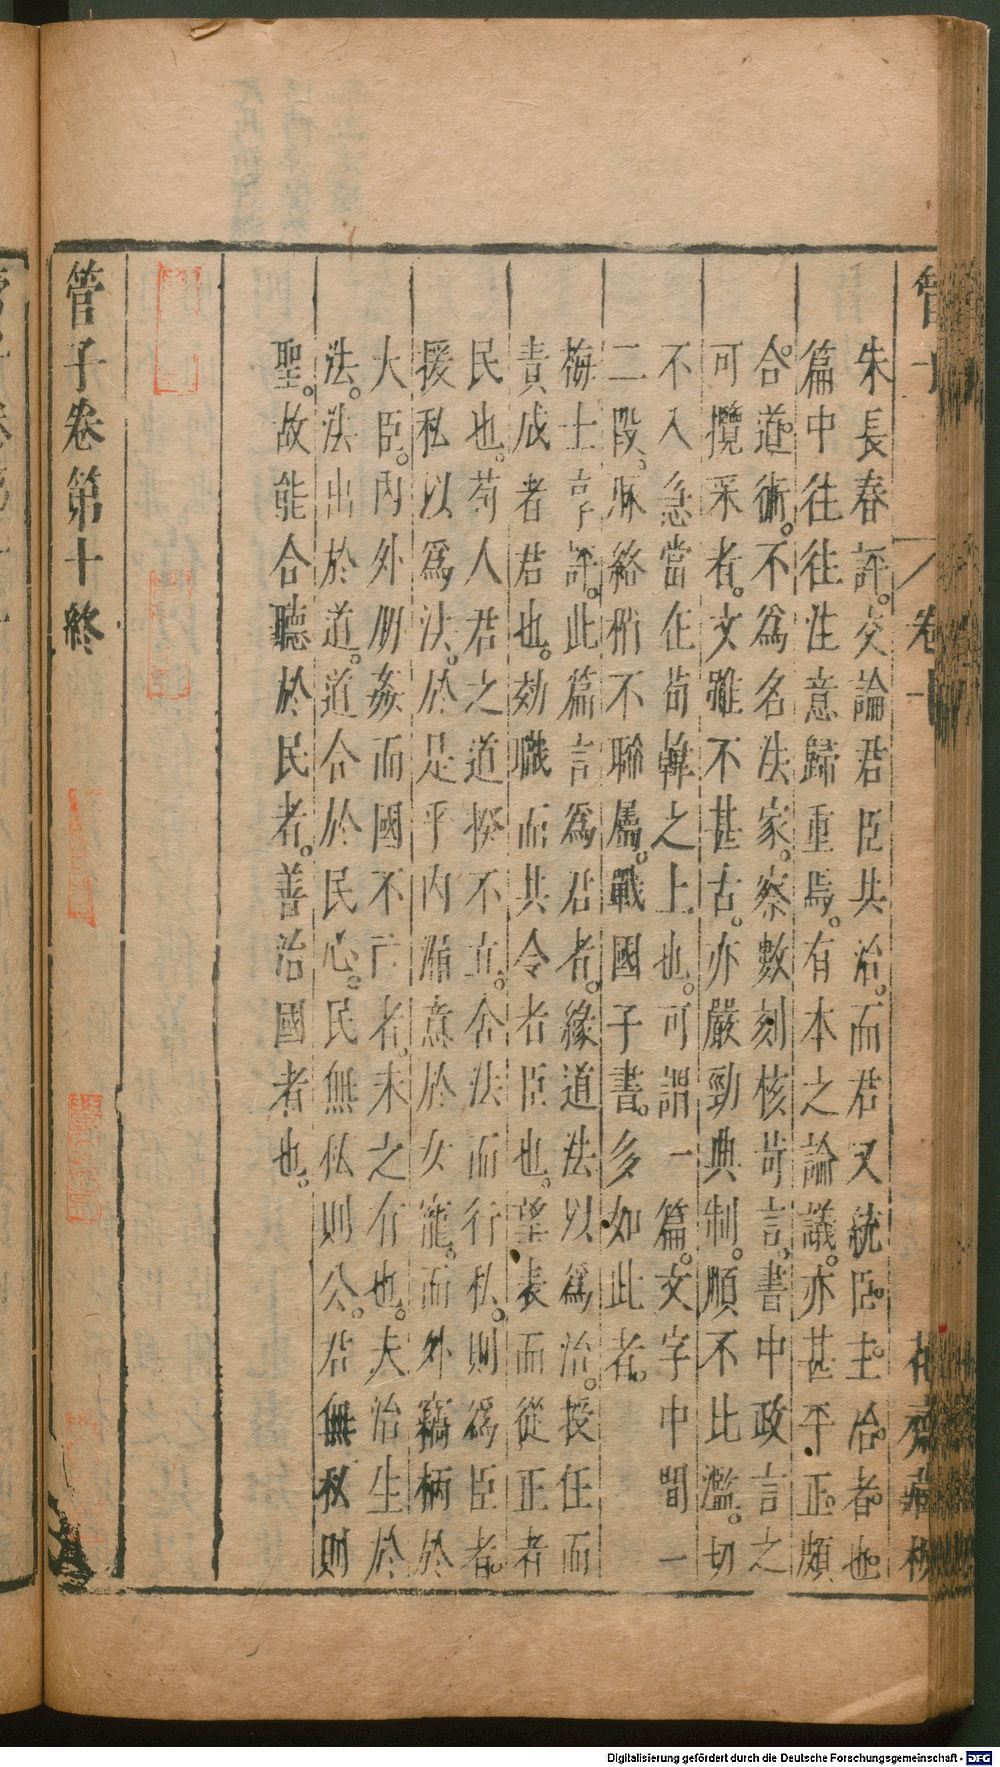 朱長春評。交論君臣共治。而君又統臣。主治。者。也。
篇中往往注意歸重焉。有本之論議。亦甚平正。頗
合。道。術。不為名法家。察數刻核苛言。書中政言之
可攬采者。文雖不甚古。亦嚴勁典制。順不比濫。切
不入急當在荀韓之上也。可謂一篇。文字中間一
二段。脉絡稍不聯屬。戰國子書。多如此者。
梅士享評。此篇言爲君者。緣道法以爲治。授任而
責成者君也。効職而共令者臣也。望表而從正者
民也。苟人君之道揆不立。舍法而行私。則爲臣者。
援私以爲法。於是乎內漸意於女寵。而外竊柄於
大臣。內外朋姦而國不亡者。未之有也。夫治生於
法。法出於道。道合於民心。民無私則公。君無私則
聖。故能合聽於民者。善治國者也。
管子卷第十終
卷十
花齋藏板
Digitalisierung gefördert durch die Deutsche Forschungsgemeinschaft - DFG